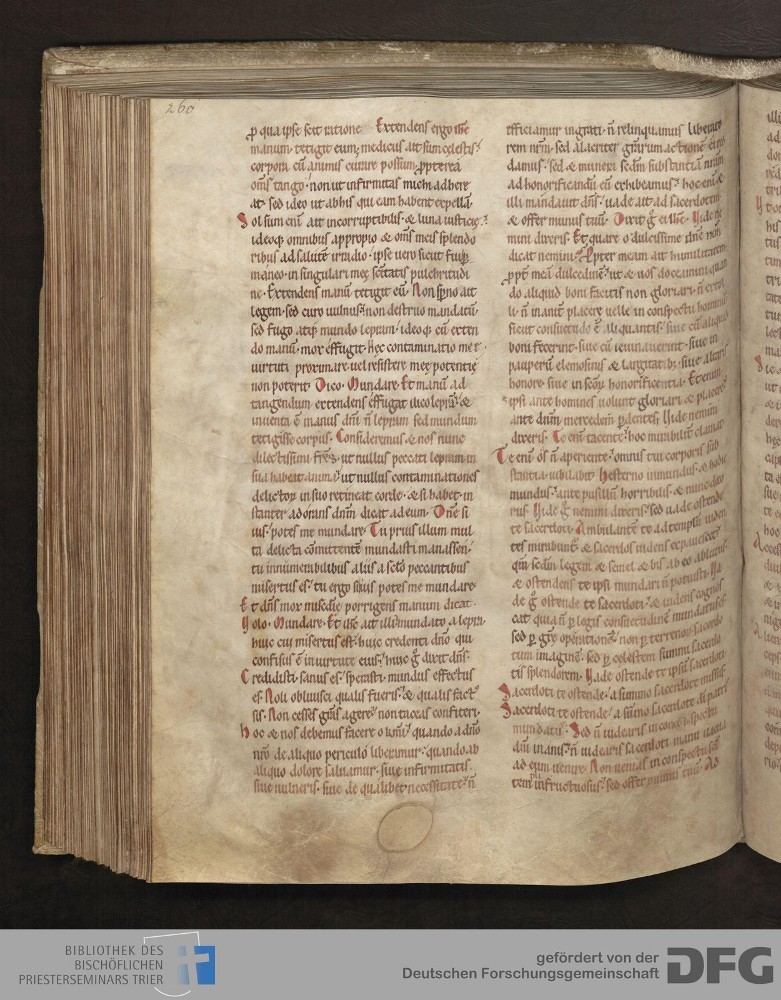 260
ꝓ qua ipse scit ratione. Extendens ergo ihc
manum. tetigit eum; medicus ait sum celestis.
corpora cū animis curare possum. ꝓpterea
om̄s tango. non ut infirmitas michi adhere
at. sed ideo ut ab his qui eam habent expellā.
Sol sum eni ait incorruptibilis. & luna iusticie.
ideoq; omnibus appropio & om̄s meis splendo
ribus ad salutē irradio. ipse uero sicut
maneo in singulari mee pulchritudi
ne. Extendens manū tetigit eū. Non sꝑno ait
legem. sed curo uulnus. non destruo mandatū.
sed fugo atq; mundo lepram. ideoq; cū exten
do manū. mox effugit. Hec contaminatio mee
uirtuti proximare uel resistere mee potentie
non poterit. Dico. Mundare. Et manū ad
tangendum extendens effugat ilico leprā. &
inuenta ē manus dnī n̄ lepram sed mundum
tetigisse corpus. Consideremus & nos nunc
dilectissimi frēs. ut nullus peccati lepram in
sua habeat anima. ut nullus contaminationes
delictoꝝ in suo retineat corde. & si habet in
stanter adorans dnm dicat ad eum. Dne si
uis. potes me mundare. Tu prius illum mul
ta delicta cōmittentē mundasti manassen.
tu innumerabilibus aliis a sclo peccantibus
misertus es. tu ergo si uis potes me mundare.
Et dns mox misedie porrigens manum dicat.
Uolo. Mundare. Et ihc ait illi mundato a lepra.
huic cui misertus est. huic credenti dno qui
confisus ē in uirtute eius. huic g̊ dixit dns.
Credidisti. sanus es. sperasti. mundus effectus
es. Noli obliuisci qualis fueris. & qualis fact
sis. Non cesses grās agere. non taceas confiteri.
Hoc & nos debemus facere o quando a dno
nro de aliquo periculo liberamur. quando ab
aliquo dolore saluamur. siue infirmitatis.
siue uulneris. siue de qualibet necessitate. n̄
efficiamur ingrati. n̄ relinquamus liberato
rem nrm. sed alacriter grarum actionē ei red
damus. sed & munera scdm substantiā nram
ad honorificandū eū exhibeamus. hoc eni &
illi mandauit dns. uade ait ad sacerdotem.
& offer munus tuū. Dixit g̊ ei ihc. Uide ne
mini dixeris. Et quare o dulcissime dne non
dicat nemini. Ꝓpter meam ait humilitatem.
ꝓpt meā dulcedinē. ut & uos doceam ni quan
do aliquid boni facitis non gloriari. n̄ extol
li. n̄ inanit placere uelle in conspectu hominū
sicut consuetudo ē aliquantis. siue cū aliquid
boni fecerint. siue cū ieiunauerint. siue in
pauperū elemosinis & largitatib;. siue altaris
honore. siue in scoꝝ honorificentia. Etenim
ipsi ante homines uolunt gloriari & placere
ante dnm mercedem ꝑdentes. Uide nemini
dixeris. Te eni tacente. hoc mirabilit clamat.
Te eni os n̄ aperiente. omnis tui corporis sub
stantia iubilabit. Hesterno inmundus. & hodie
mundus. ante pusillū horribilis. & nunc
rus. Uide g̊ nemini dixeris. sed uade ostende
te sacerdoti. Ambulantē te ad templū uiden
tes mirabunt. & sacerdos uidens expauescet.
qm scdm legem & semel & bis ab eo ablutus.
& ostendens te ipsi mundari n̄ potuisti. Ua
de g̊ ostende te sacerdoti. & uidens cognos
cat quia n̄ ꝑ legis consuetudinē mundatus es.
sed ꝑ grē operationē. non ꝑ terrenoꝝ sacerdo
tum imaginē. sed ꝑ celestem summi sacerdo
tis splendorem. Uade ostende te ipsū sacerdoti.
Sacerdoti te ostende. a summo sacerdote missus.
Sacerdoti te ostende. a sumo sacerdote di patris
mundatus. Sed n̄ uidearis in conspectu
dnī inanis. n̄ uidearis sacerdoti manu uacua
ad eum uenire. Non uenias in conspectu scm
tem pli infructuosus. sed offer munus tuū. Ad
BIBLIOTHEK DES
BISCHÖFLICHEN
PRIESTERSEMINARS TRIER
gefördert von der
Deutschen Forschungsgemeinschaft
DFG